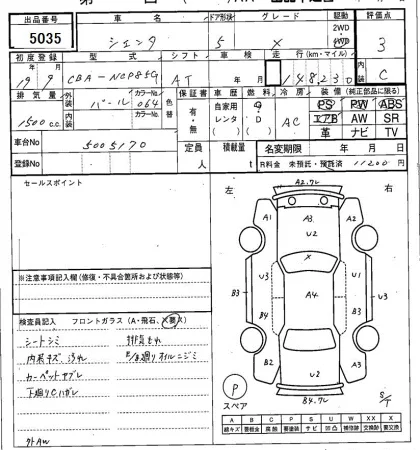 出品番号 車名 ドア形状 グレード 駆動 評価点
5035 シエンタ 5 X 2WD 4WD 3
初度登録 型式 シフト 車検 走行(km・マイル) 内装
19年9月 CBA-NCP85G AT 148230 C
排気量 外装色 カラーNo. 色替 保証書 車歴 燃料 冷房 装備(純正部品に限る)
1500cc パール 064 有・無 自家用 レンタ G・D AC PS PW ABS
内装 カラーNo. エアB AW SR
革 ナビ TV
車台No 5005170 定員 人 積載量 t 名変期限 年 月 日
登録No R料金 未預託・預託済 11200円
セールスポイント
左 右
A2.7L
A1 A3 A2
U2
U3 U1
B3 A4 A3
B4 U3
B2 A3
U2
B4.7L
※注意事項記入欄(修復・不具合箇所および状態等)
検査員記入 フロントガラス(A・飛石、X要X)
シートシミ 排気もれ
内装キズ、汚れ E/G廻りオイルニジミ
カーペットヤブレ
下廻りCハガレ
外AW
P
スペア
S/T
A B C P S U W X XX
線キズ 要板金 腐蝕 要塗装 サビ 凹凸 補修跡 要交換 交換済